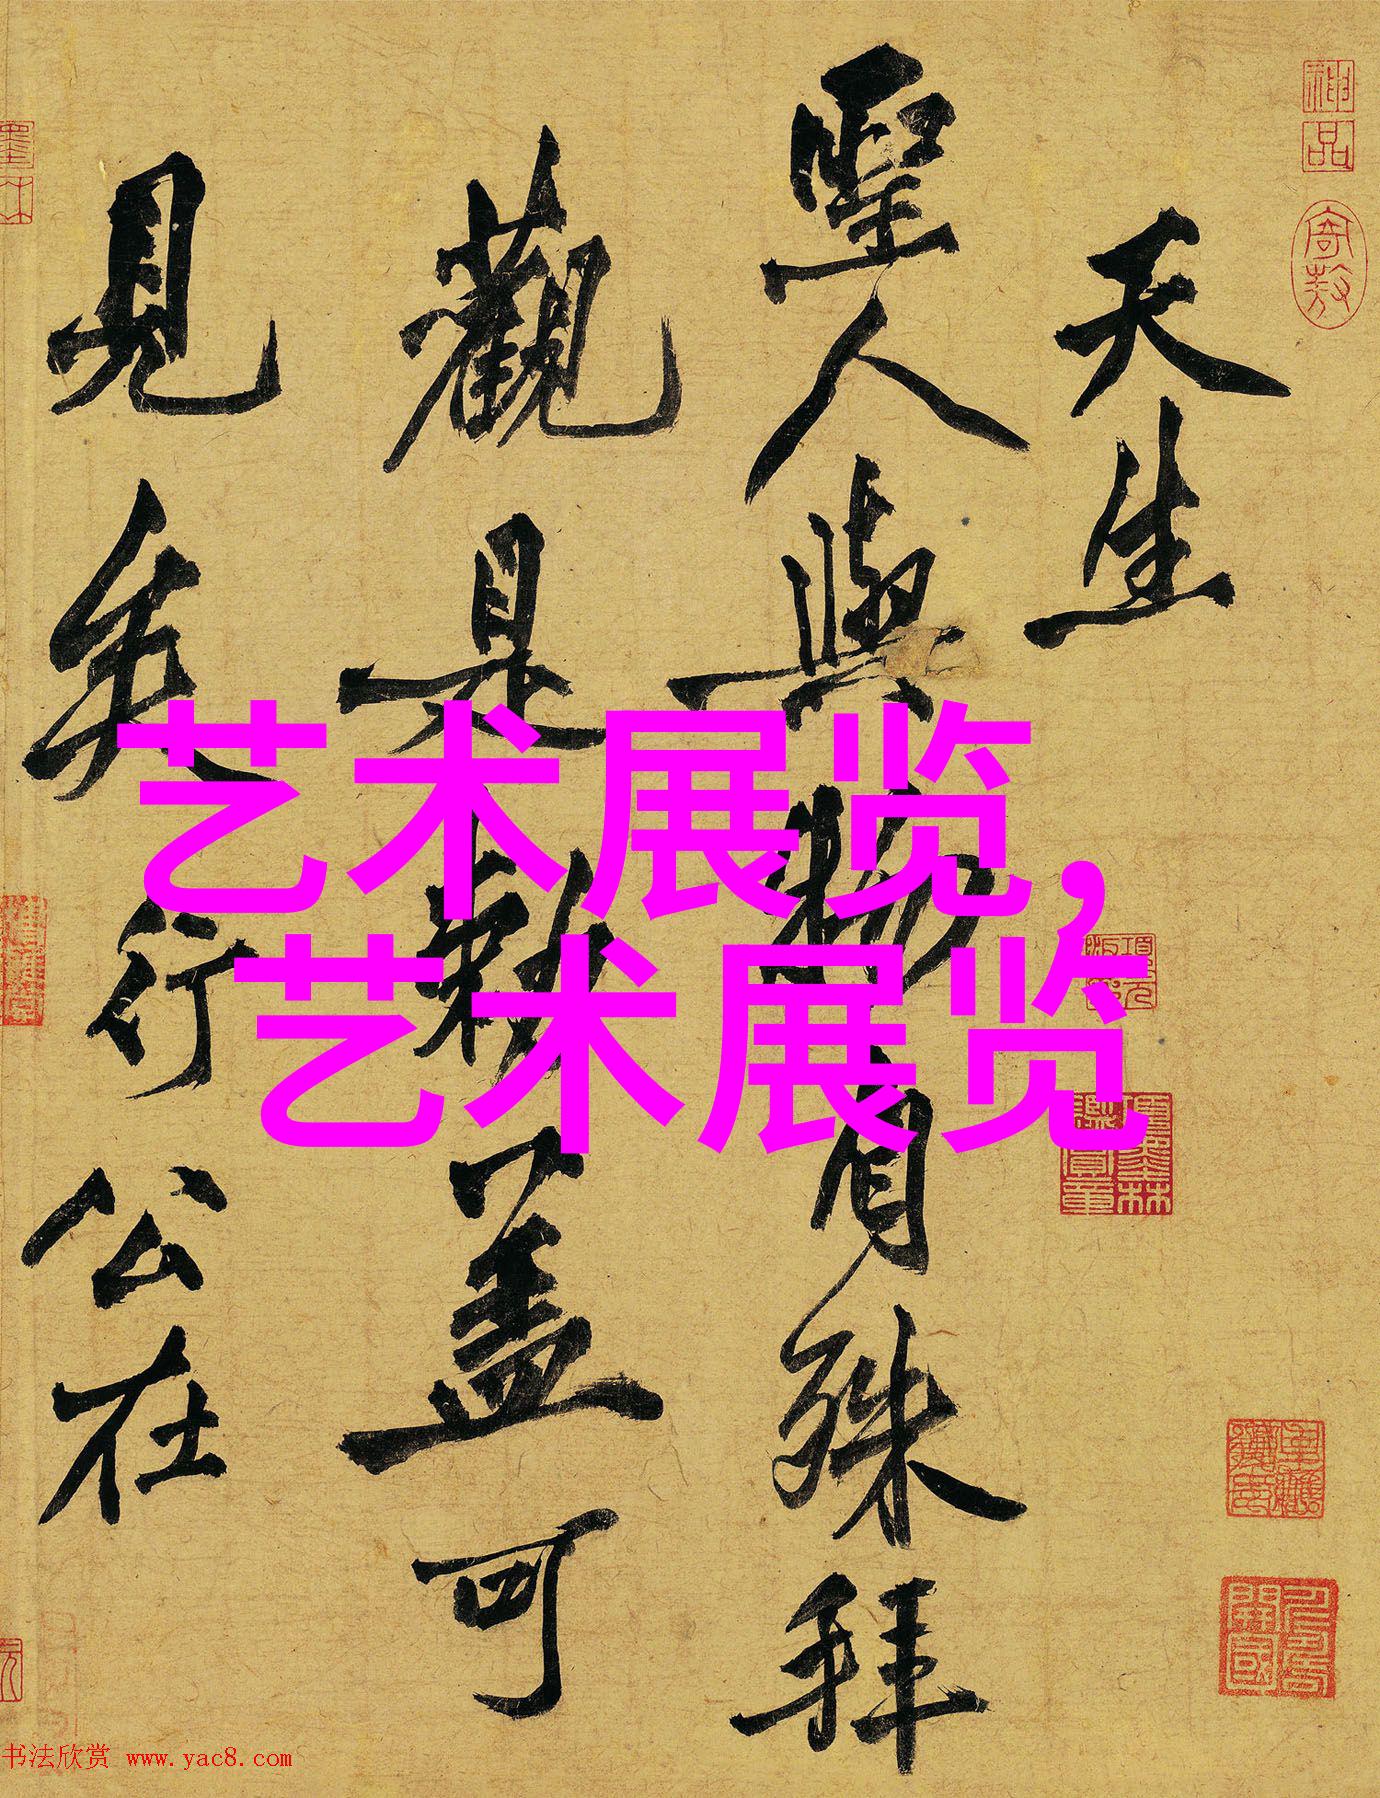 天生
聖人與物有殊拜
觀是敕蓋可
見矣行公在
艺术展览，
艺术展览
神品
书法欣赏 www.yac8.com